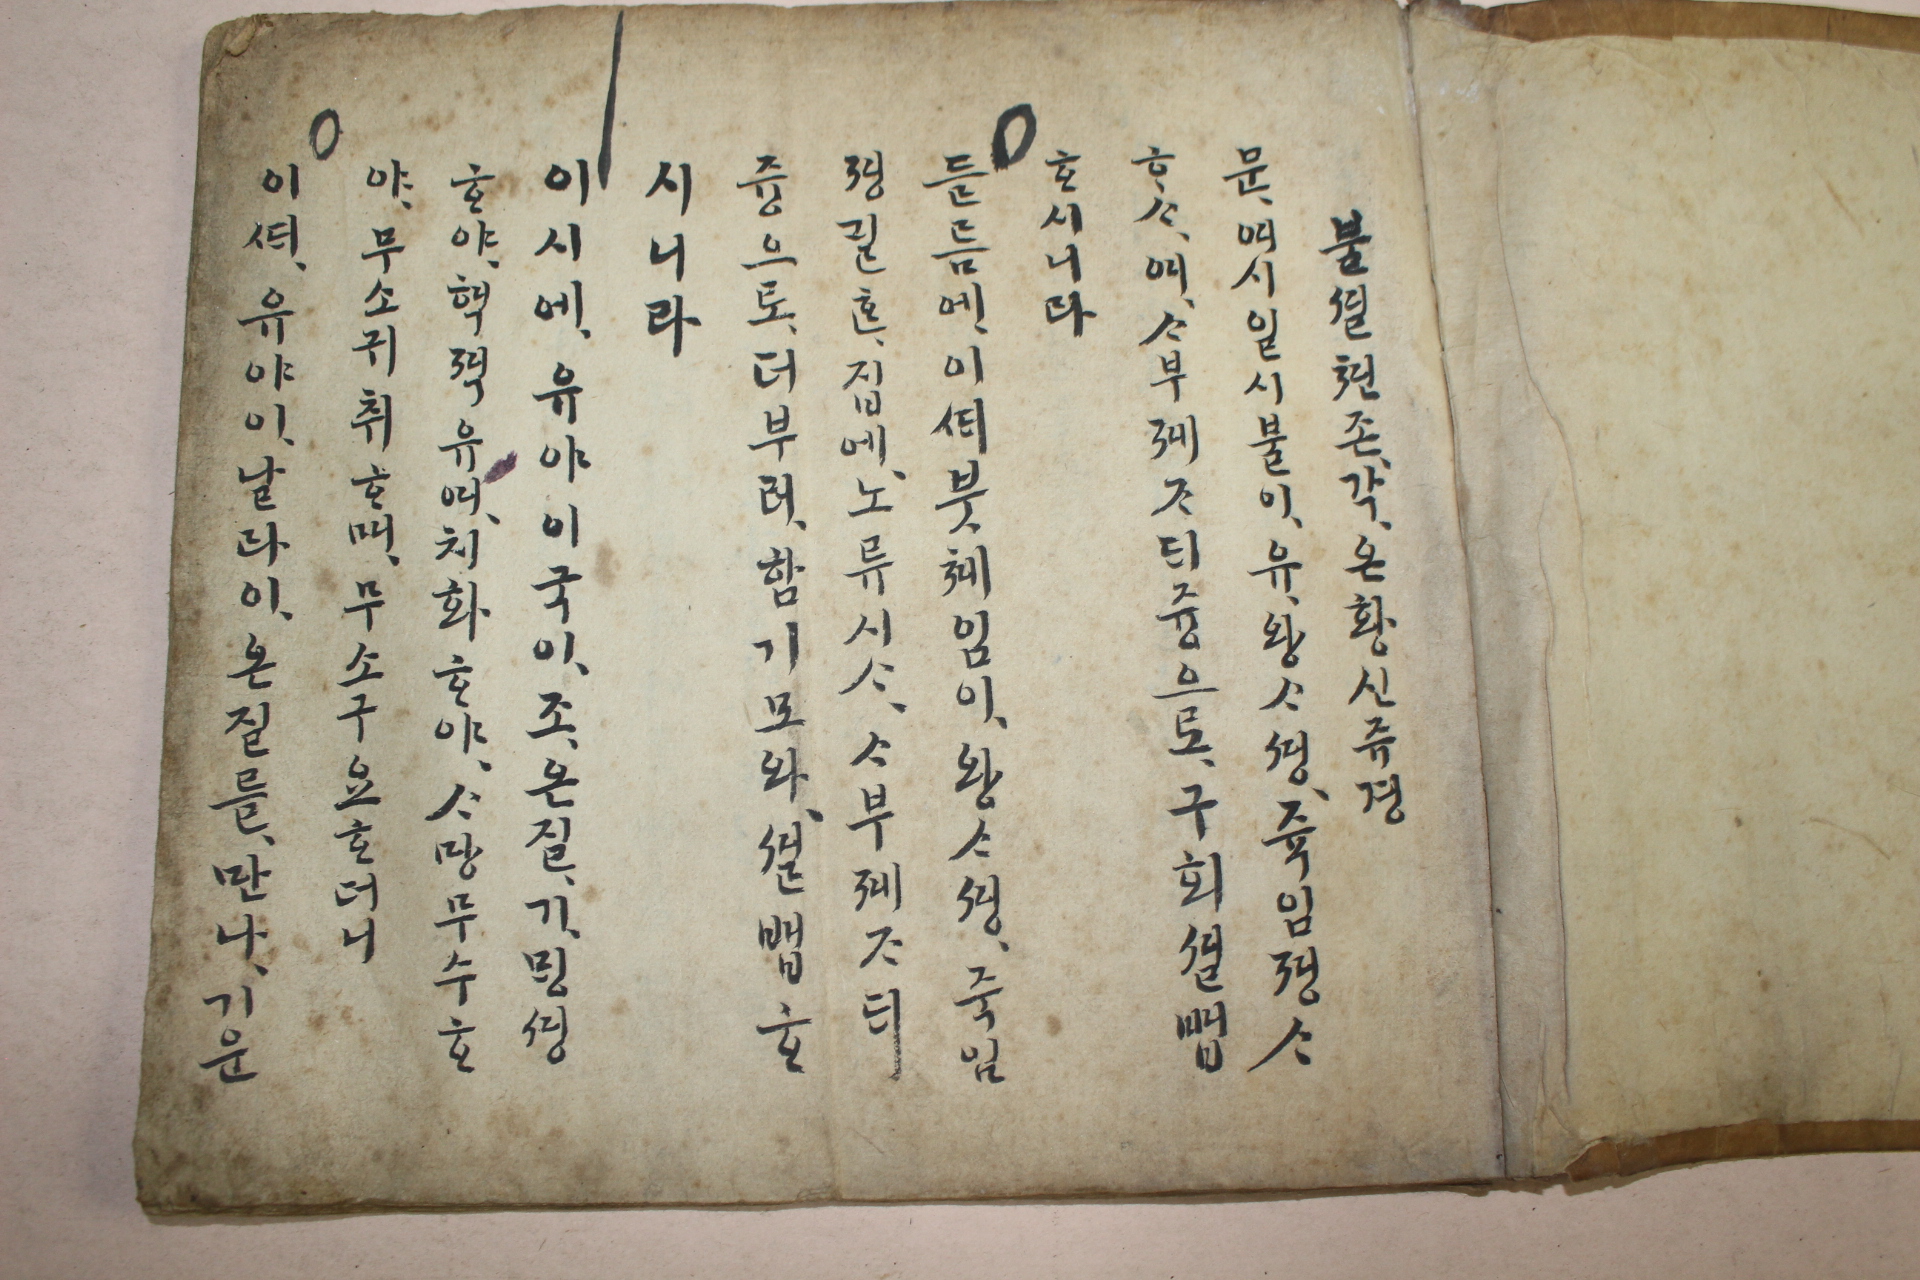 불셜쳔존,각,온황신쥬경
문,여시일시불이,유,왕ᄉ셩,쥭임졍ᄉ
ᄒᆞᄉ,여,ᄉ부졔ᄌᆞ듸즁으로,구회셜뱁
ᄒᆞ시니라
듣름에,이셰붓쳬임이,왕ᄉ셩,죽임
졍질흔,집에,노류시ᄉ,ᄉ부졔ᄌᆞ듸
즁으로,더부러,함기모와,셜뱁ᄒᆞ
시니라
이시에,유야이국이,조,온질,기,밍셩
ᄒᆞ야,혁젹유여,치화ᄒᆞ야,ᄉ망무수ᄒᆞ
야,무소귀취ᄒᆞ며,무소구요ᄒᆞ더니
이셰,유야이,날라이,온질를,만나,기운